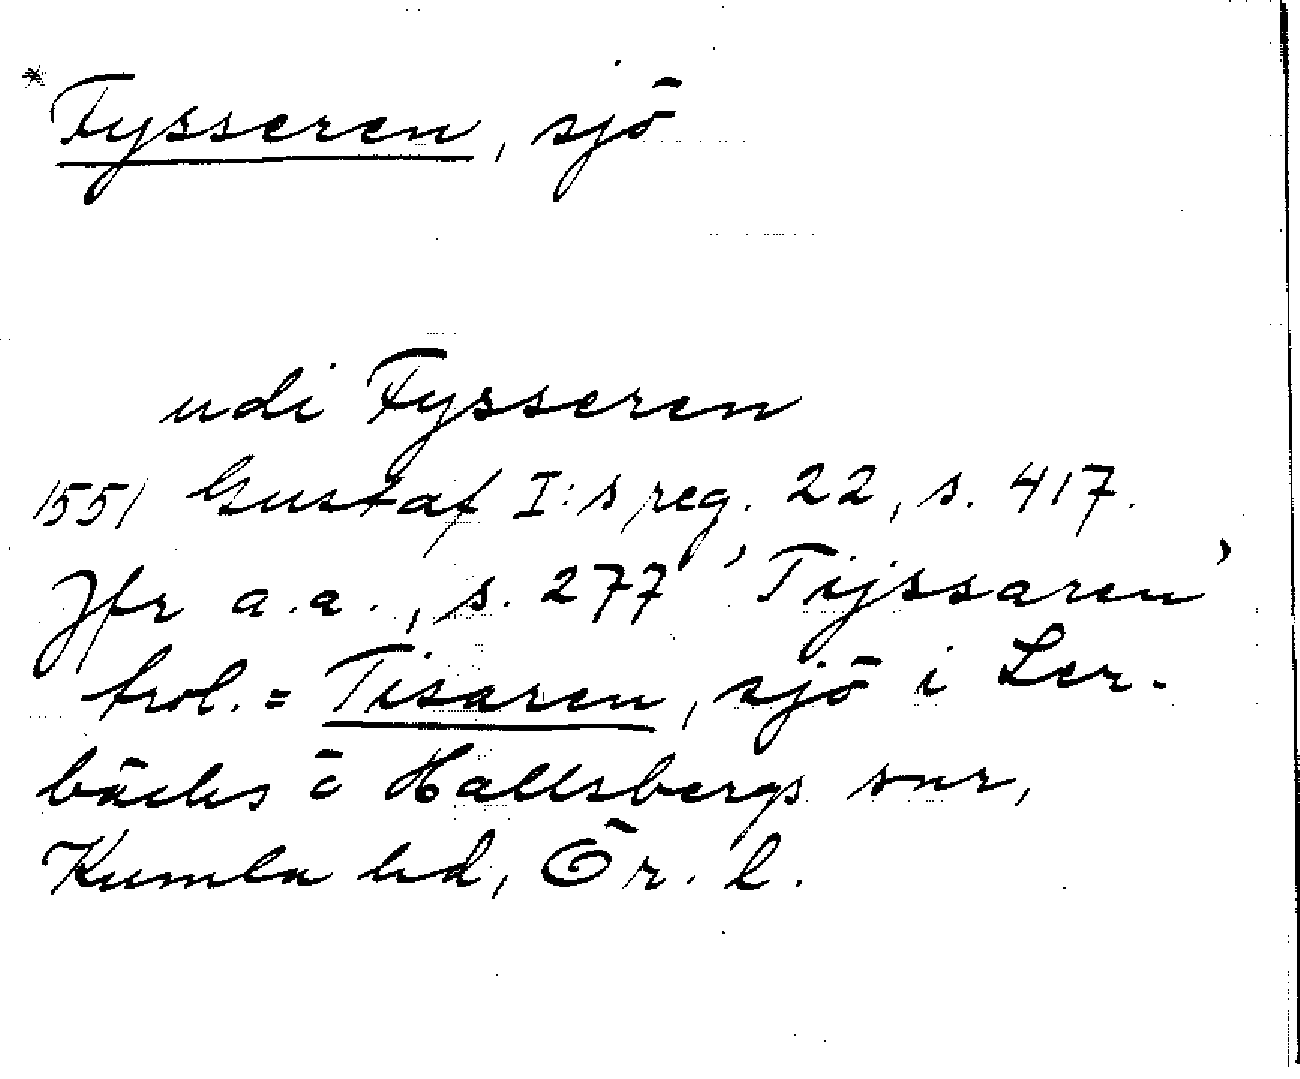 * Fysseren, sjö
udi Fysseren
1551 Gustaf I:s reg. 22, s. 417.
Jfr a.a., s. 277 'Tijssaren'
trol. = Tisaren, sjö i Ler-
bäcks o Hallsbergs snr,
Kumla hd, Ör. l.